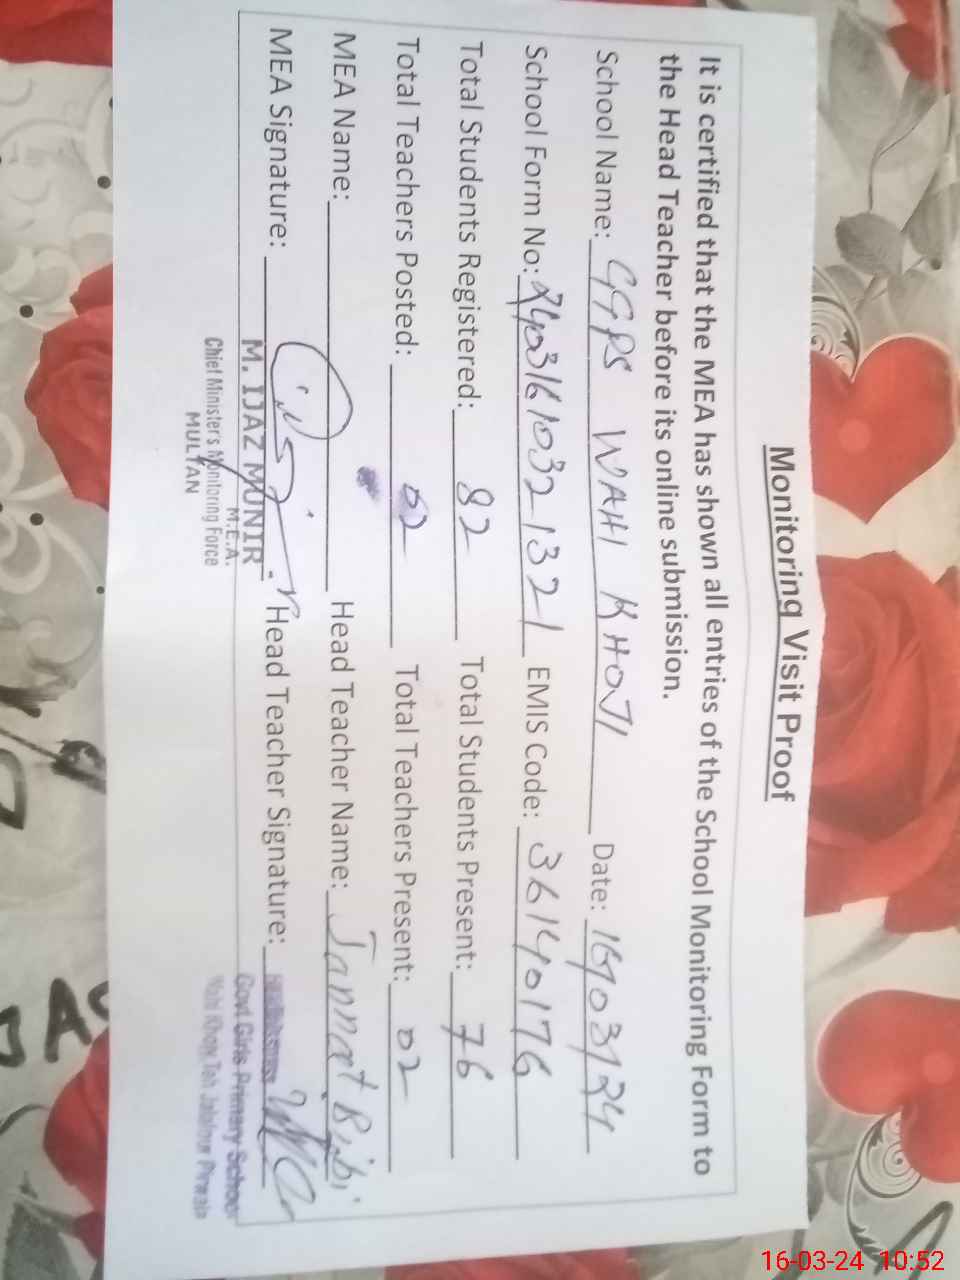 Monitoring Visit Proof
It is certified that the MEA has shown all entries of the School Monitoring Form to
the Head Teacher before its online submission.
School Name: GGPS WAHI KHOJI Date: 16/03/24
School Form No: 24031610321321 EMIS Code: 36140176
Total Students Registered: 82 Total Students Present: 76
Total Teachers Posted: 02 Total Teachers Present: 02
MEA Name: Head Teacher Name: Jannat Bibi
MEA Signature: Head Teacher Signature:
M. IJAZ MUNIR
M.E.A.
Chief Minister's Monitoring Force
MULTAN
Govt Girls Primary School
Wahi Khoji Teh Jalalpur Pirwala
16-03-24 10:52